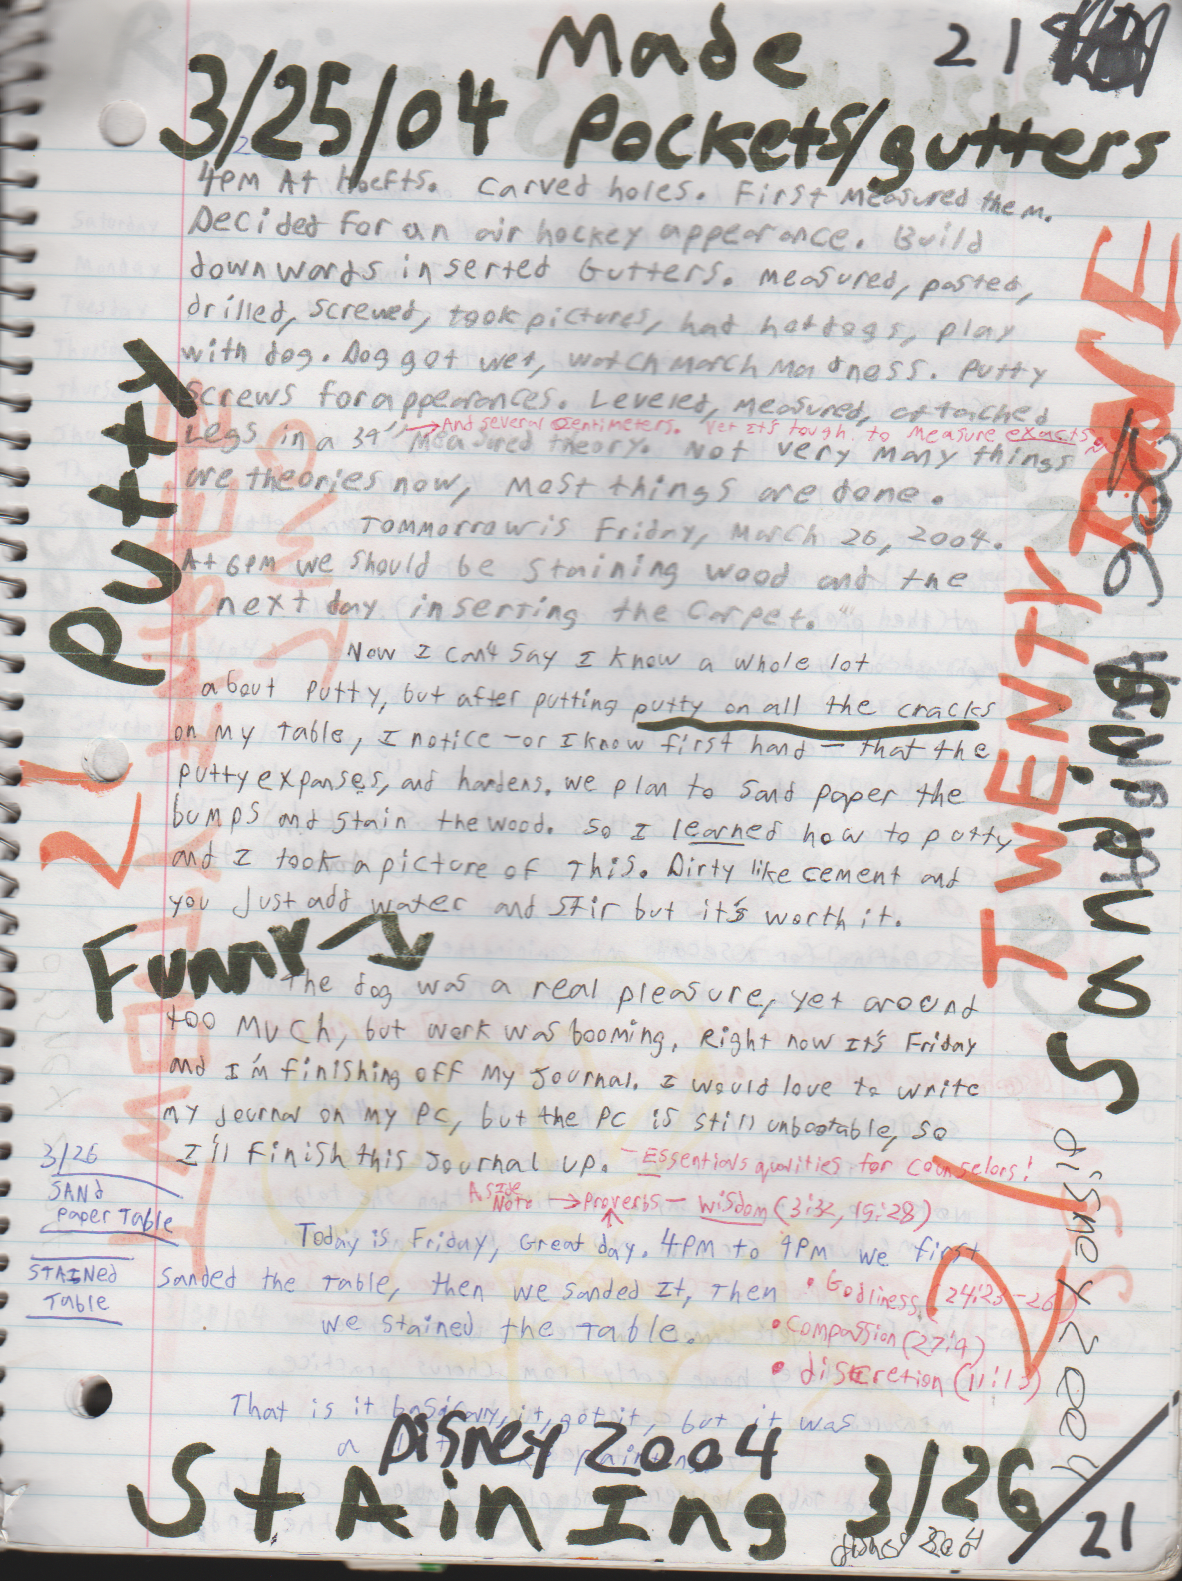 Made 21
3/25/04 Pockets/gutters
4PM At Hoefts. Carved holes. First Measured them.
Decided for an air hockey appearance. Build
downwards inserted Gutters. Measured, pasted,
drilled, screwed, took pictures, had hotdogs, play
with dog. Dog got wet, watch March Madness. Putty
screws for appearances. Leveled, measured, attached
→And several centimeters. Yet it's tough to measure exacts
Legs in a 34" Measured theory. Not very many things
are theories now, most things are done.
Tommorrow is Friday, March 26, 2004.
At 6PM we should be staining wood and the
next day inserting the carpet.
Putty
21
Now I can't say I know a whole lot
about putty, but after putting putty on all the cracks
on my table, I notice -or I know first hand- that the
putty expanses, and hardens. We plan to sand paper the
bumps and stain the wood. So I learned how to putty
and I took a picture of This. Dirty like cement and
you just add water and stir but it's worth it.
Funny →
The dog was a real pleasure, yet around
too much, but work was booming. Right now It's Friday
and I'm finishing off my journal. I would love to write
my journal on my PC, but the PC is still unbootable, so
I'll finish this Journal up. - Essentials qualities for counselors!
A Side Note → Proverbs - wisdom (3:32, 19:28)
3/26
SANd
paper Table
STAINed
Table
Today is Friday, Great day. 4PM to 9PM we first
sanded the table, then we sanded It, Then
we stained the table.
• Godliness (24:23-26)
• compassion (27:4)
• discretion (11:13)
That is it basically, it, got it, but it was
a
Disney 2004
StAinIng 3/26
21
TWENTY
Sanding
Disney 2004
21